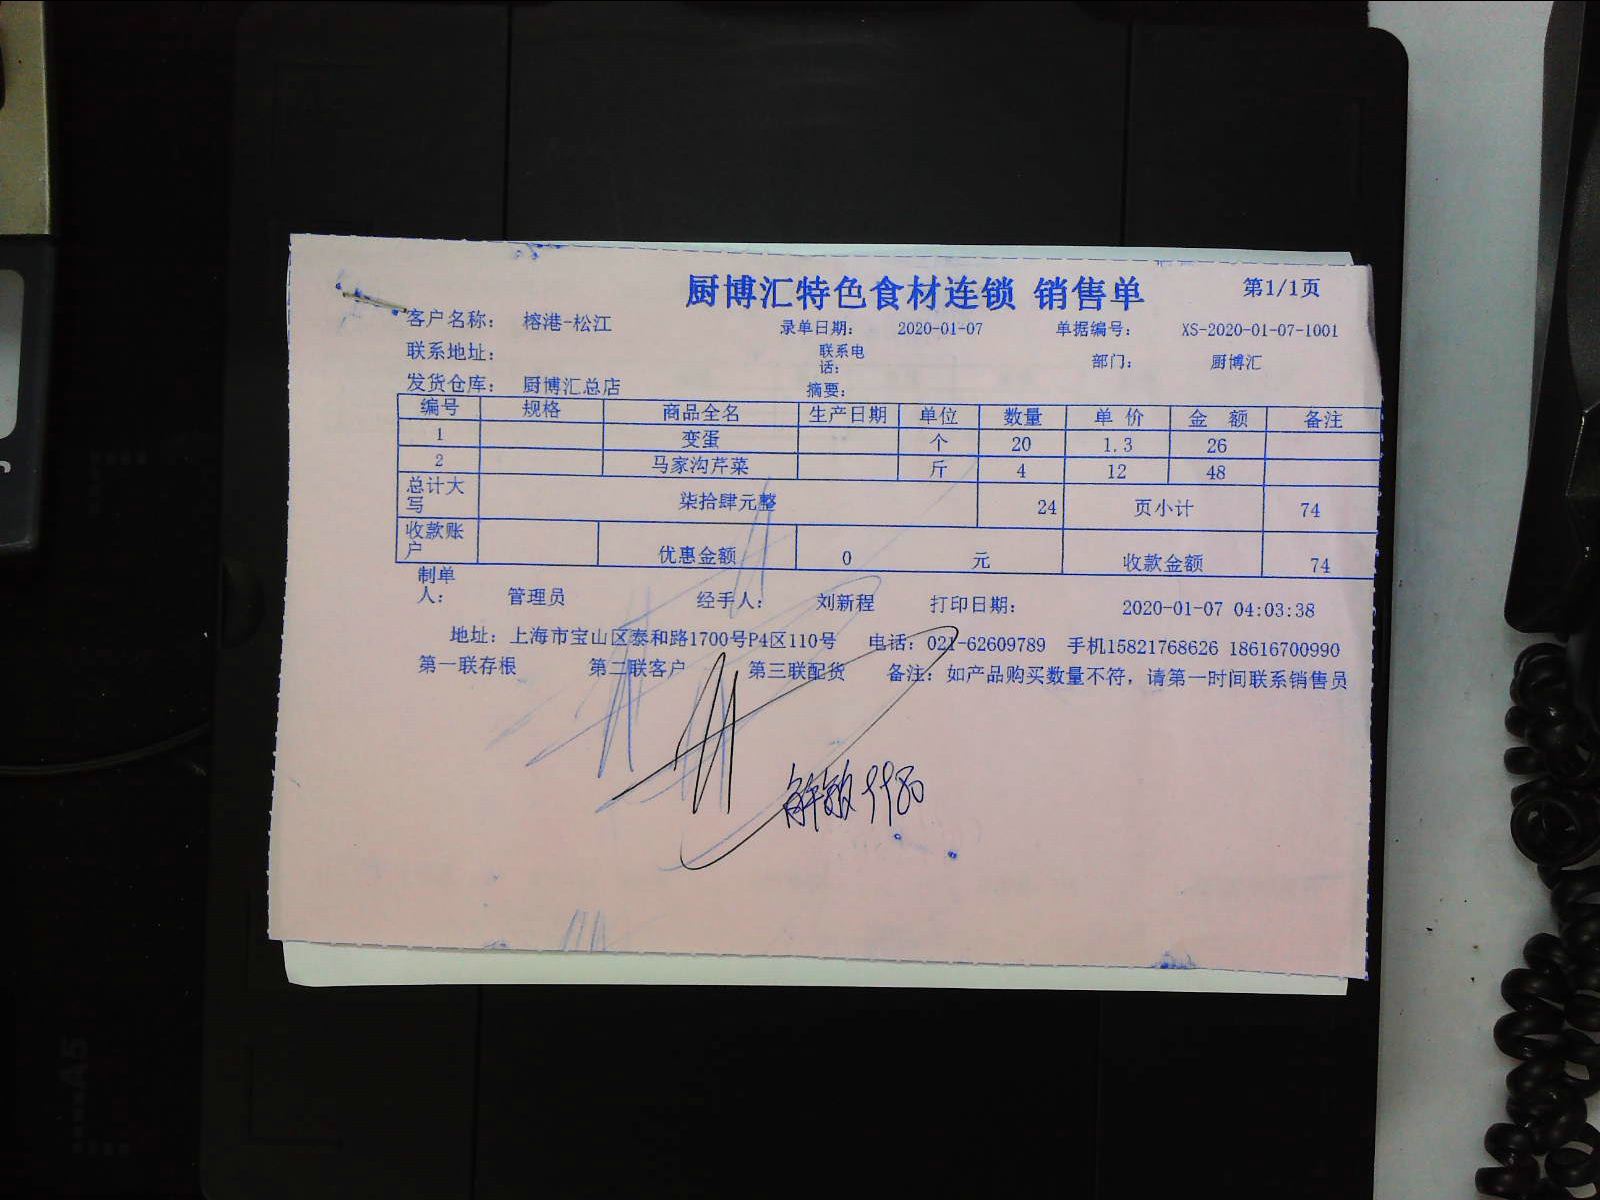 厨博汇特色食材连锁 销售单 第1/1页
客户名称： 榕港-松江 录单日期： 2020-01-07 单据编号： XS-2020-01-07-1001
联系地址： 联系电话： 部门： 厨博汇
发货仓库： 厨博汇总店 摘要：
编号 规格 商品全名 生产日期 单位 数量 单 价 金 额 备注
1 变蛋 个 20 1.3 26
2 马家沟芹菜 斤 4 12 48
总计大写 柒拾肆元整 24 页小计 74
收款账户 优惠金额 0 元 收款金额 74
制单人： 管理员 经手人： 刘新程 打印日期： 2020-01-07 04:03:38
地址：上海市宝山区泰和路1700号P4区110号 电话：021-62609789 手机15821768626 18616700990
第一联存根 第二联客户 第三联配货 备注：如产品购买数量不符，请第一时间联系销售员